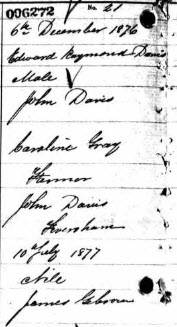 006272
No. 21
6th December 1876
Edward Raymond Davis
Male
John Davis
Caroline Gray
Farmer
John Davis
Eversham
10th July 1877
Nile
James